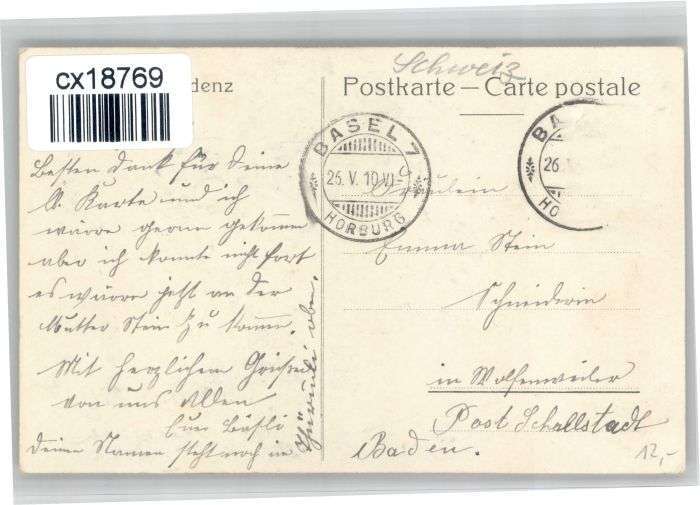 cx18769
denz
Schweiz
Postkarte — Carte postale
BASEL 7
26. V. 10.VI-9
HORBURG
BA
26. V.
HO
Besten Dank für Deine
lb. Karte und ich
wäre gerne gekommen
aber ich konnte nicht fort
es wäre jetzt an der
Mutter Stein zu kommen.
Mit herzlichem Grüssen
von uns Allen
Euer Bäsli
Deinen Namen steht noch im
oben.
Fräulein
Emma Stein
Schneiderin
in Wolfenweiler
Post Schallstadt
Baden.
12,-